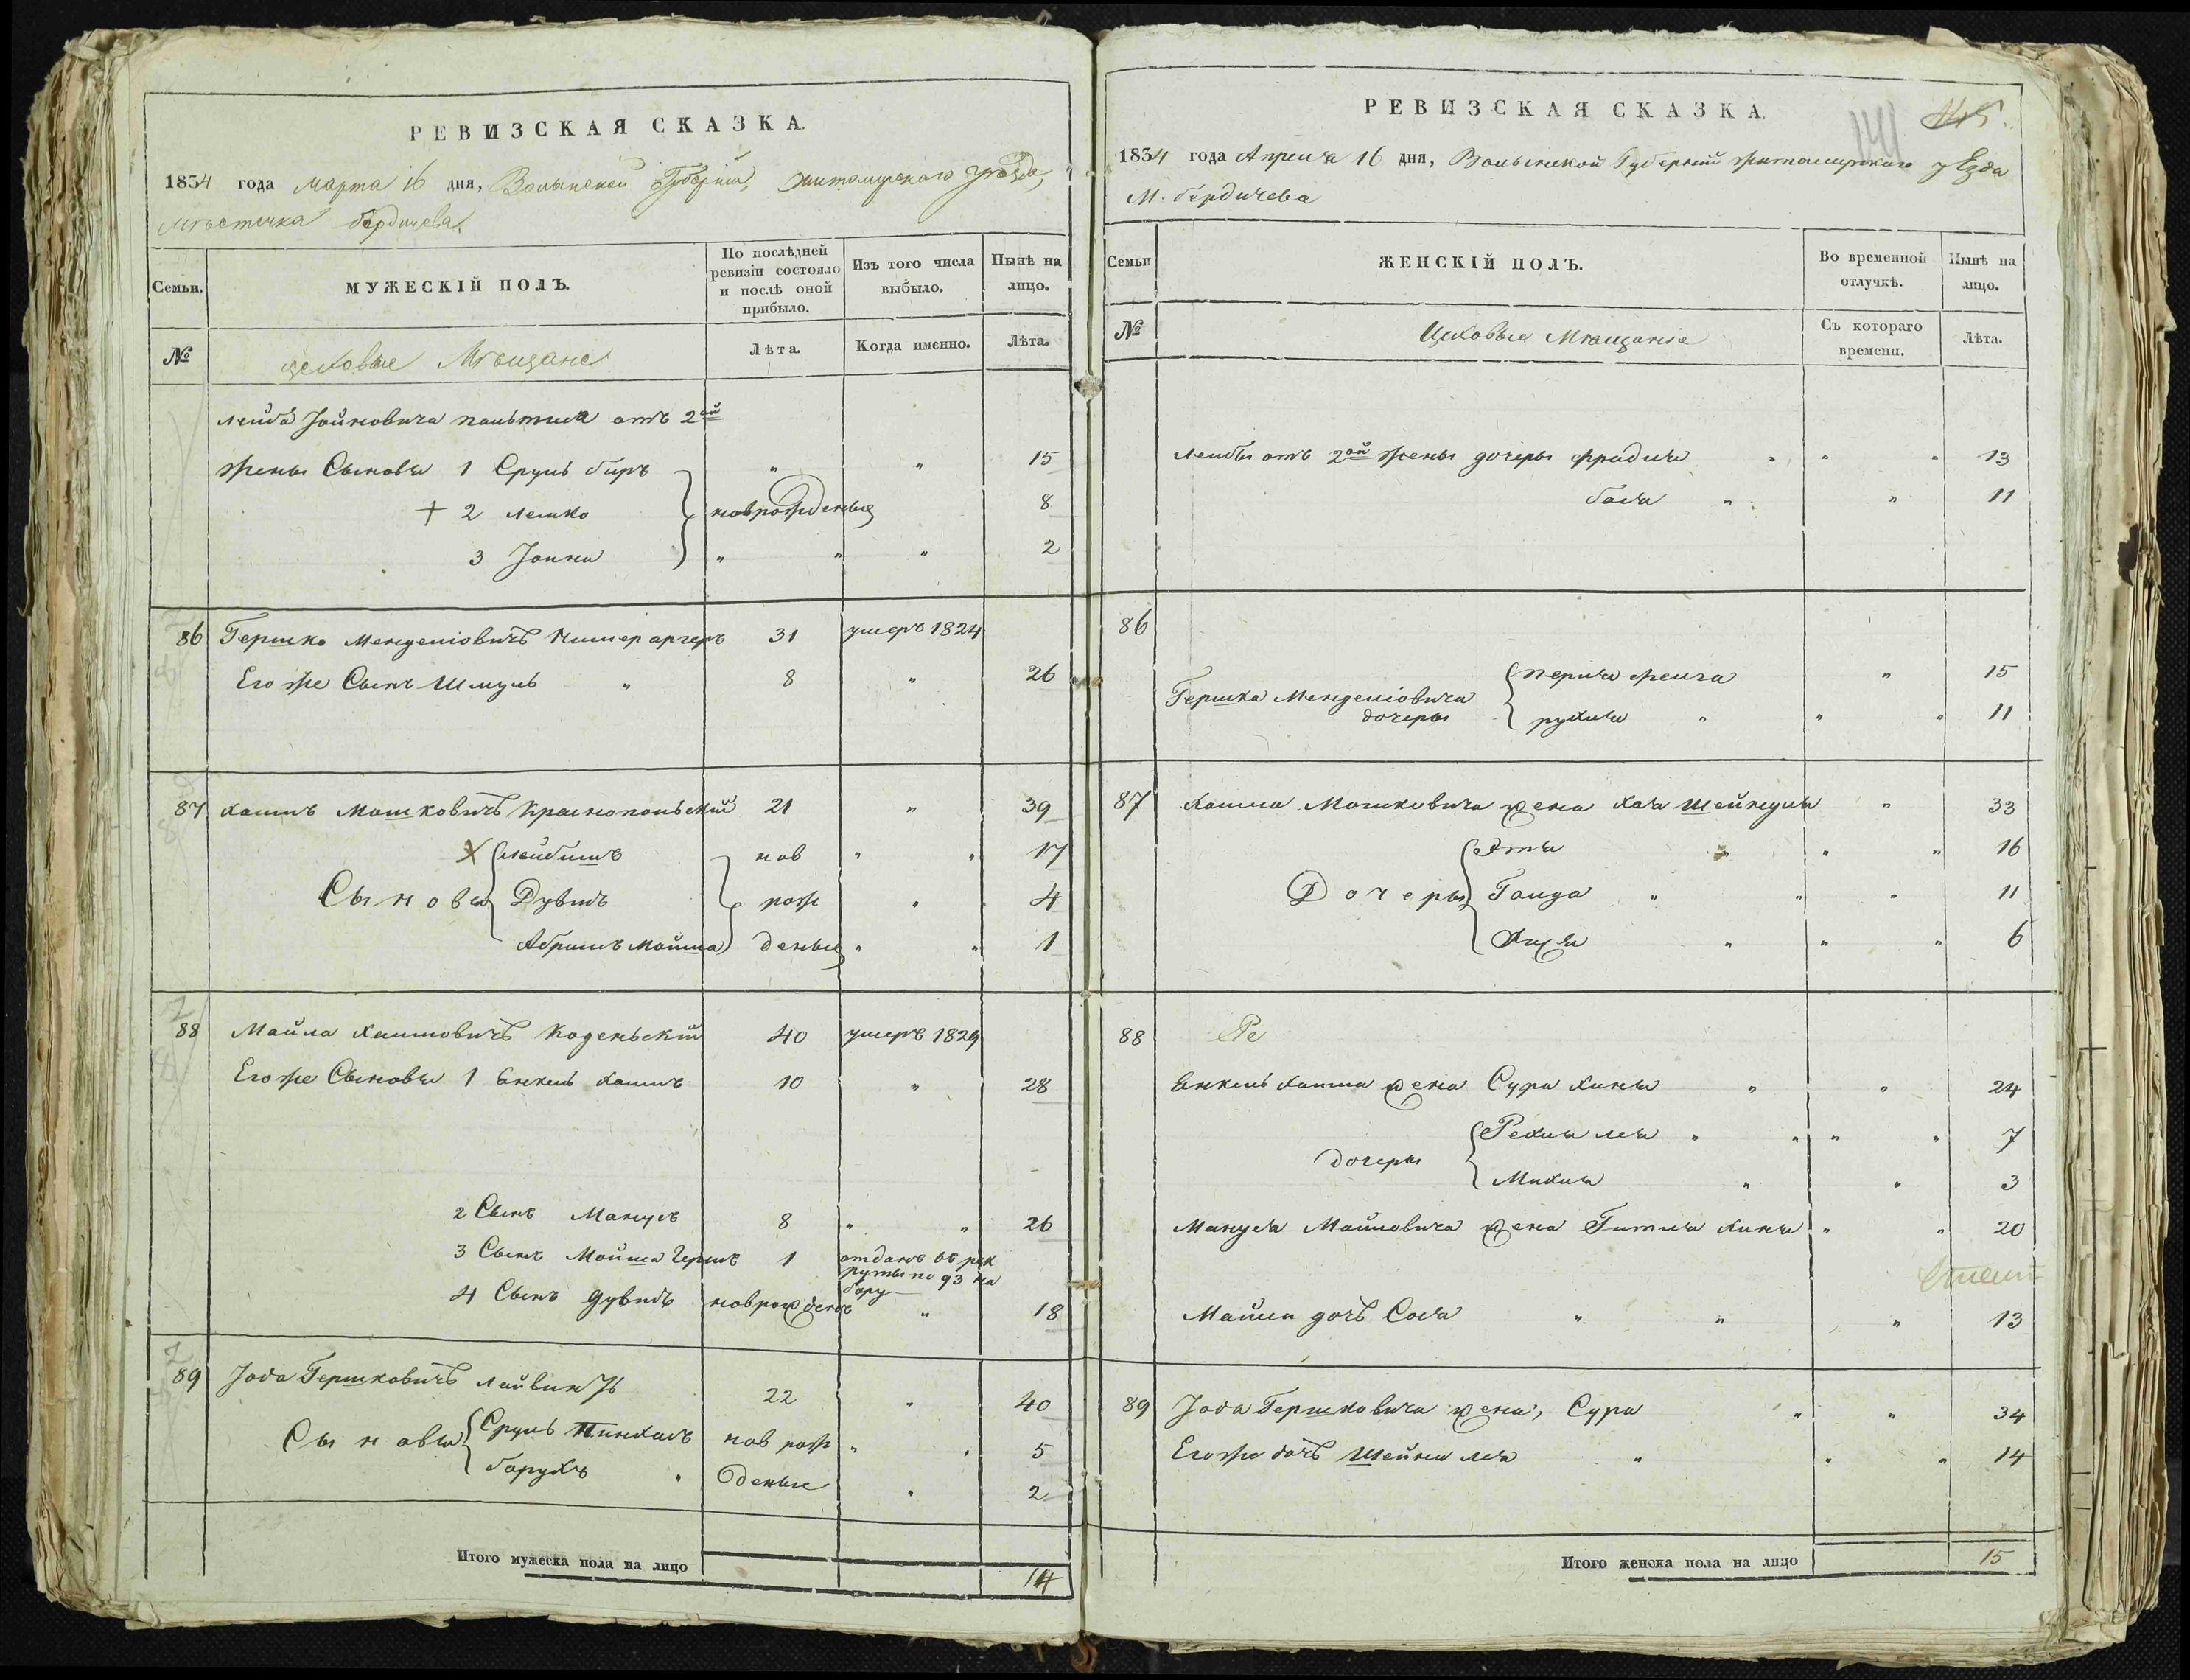 РЕВИЗСКАЯ СКАЗКА.
1834 года Марта 16 дня, Волынской Губерніи, Житомирского уезда,
Мѣстечка Бердичева
Семьи.
МУЖЕСКІЙ ПОЛЪ.
По послѣдней ревизіи состояло и послѣ оной прибыло.
Изъ того числа выбыло.
Нынѣ на лицо.
№
цеховые Мѣщане
Лѣта.
Когда именно.
Лѣта.
Лейба Іойновича от 2ой
жены Сыновья 1 Сруль беръ " " 15
+ 2 Лейко новорожденые 8
3 Іойна " " " 2
86 Гершко Менделіовичъ 31 умеръ 1824
Его же Сынъ Шмуль " 8 " 26
87 Хаимъ Мошковичъ Краснопольскій 21 " 39
Сыновья
Х Лейбишъ нов " " 17
Дувидъ рож " 4
Абрамъ Мойша деные " " 1
88 Майла Хаимовичъ Коденьскій 40 умеръ 1829
Его же Сыновья 1 Янкель Хаимъ 10 " 28
2 Сынъ Манусъ 8 " " 26
3 Сынъ Мойша Гершъ 1 отданъ въ рек
руты по 93 на
бору
4 Сынъ Дувидъ новрожденъ " 18
89 Іова Гершковичъ 22 " 40
Сыновья
Сруль Пинхасъ нов рож " " 5
Борухъ " деные " 2
Итого мужеска пола на лицо
14
РЕВИЗСКАЯ СКАЗКА.
141 145.
1834 года Апреля 16 дня, Волынской Губерніи Житомирскаго уезда
М. Бердичева
Семьи
ЖЕНСКІЙ ПОЛЪ.
Во временной отлучкѣ.
Нынѣ на лицо.
№
Цеховые Мещаніе
Съ котораго времени.
Лѣта.
Лейбы от 2ой жены дочеры Фрадля " " " 13
Бася " " 11
86
Гершка Менделіовича
дочеры
Перля Фейга " 15
рухля " " " 11
87 Хаима Мошковича жена Хая Шейндля " 33
Дочеры
Этя " " " 16
Голда " " " 11
" " " 6
88 Ре
Янкель Хаима жена Сура Хания " " 24
дочеры
Рехля лея " " " " 7
" " 3
Мануся Майловича жена Гитля Ханя " " 20
Майли дочь Сося " " " 13
89 Іова Гершковича жена, Сура " " 34
Его же дочь Шейна лея " " " 14
Итого женска пола на лицо
15